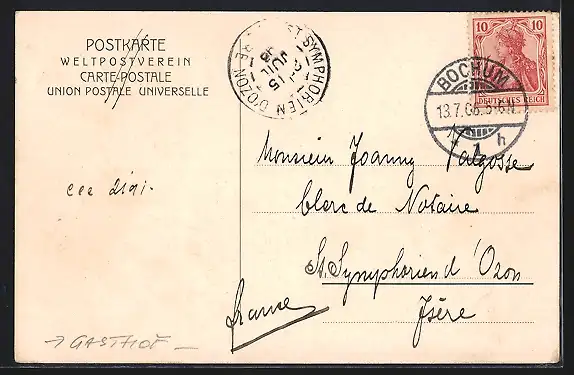 POSTKARTE
WELTPOSTVEREIN
CARTE-POSTALE
UNION POSTALE UNIVERSELLE
ST SYMPHORIEN D'OZON
15
JUIL
08
10 10
DEUTSCHES REICH
BOCHUM
13.7.08.5-6N.
1 h
Monsieur Joanny Valgosse
Clerc de Notaire
St. Symphorien d'Ozon
Isère
france
→ GASTHOF —